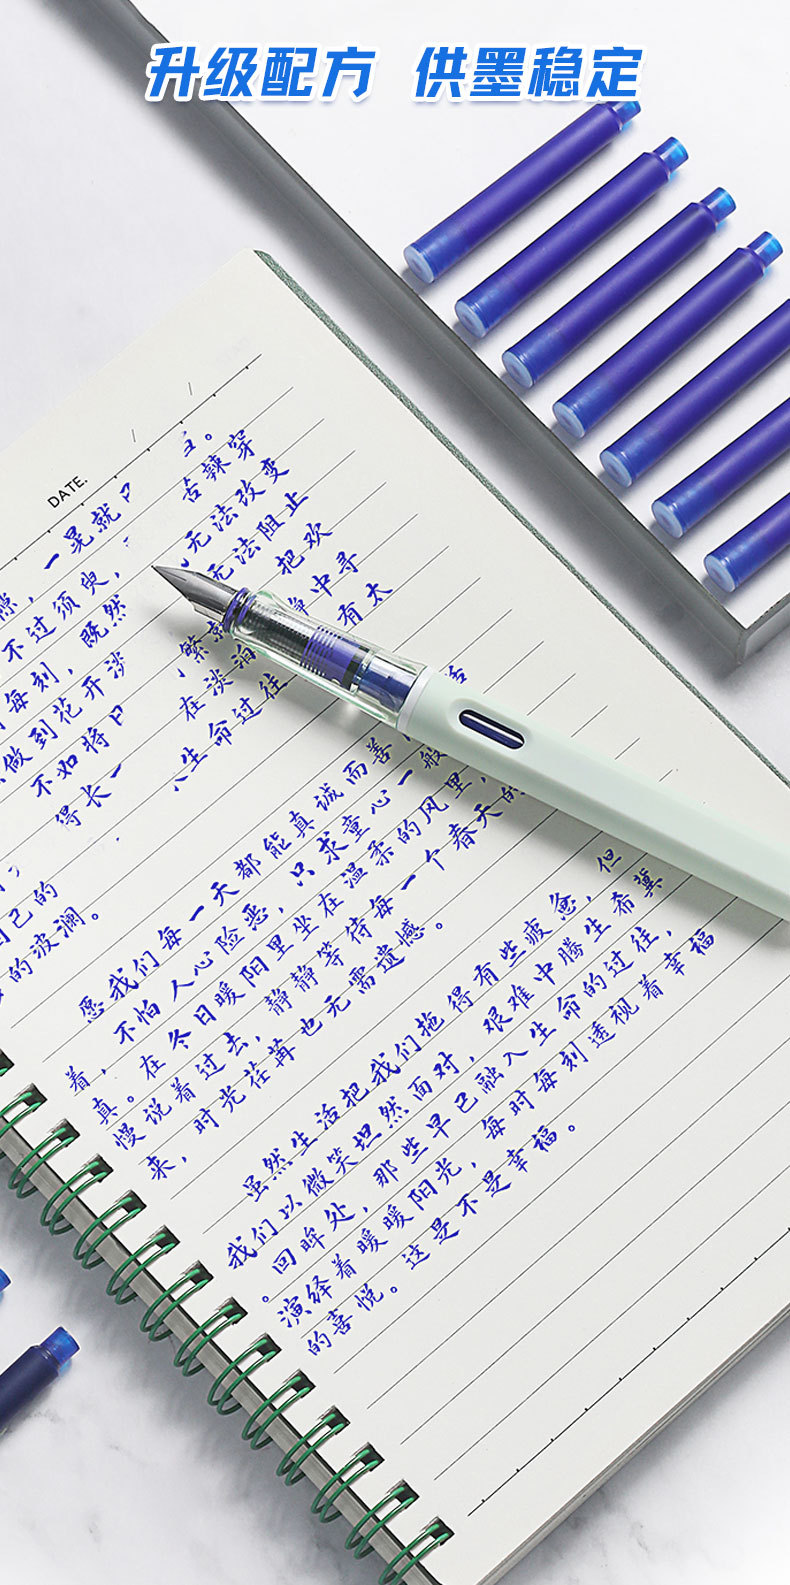 升级配方 供墨稳定
DATE.
主。
一晃就
苦辣穿
不过须臾，
无法改变
每刻，既然
无法阻止
做到花开淡
把欢
不如将
中寻
得长一
繁
有太
在淡泊
生命过往
自己的
的波澜。
愿我们每一天都能真诚而善
不怕人心险恶，只求童心一般
着，在冬日暖阳里坐在温柔的风里，
真。在
慢说着过去，静静等待每一个春天的
来，时光荏苒也无需遗憾。
虽然生活把我们拖得有些疲惫，但
我们以微笑坦然面对，艰难中腾生希冀
。回眸处，那些早已融入生命的过往，
演绎着暖暖阳光，每时每刻透视着幸福
的喜悦。这是不是幸福。